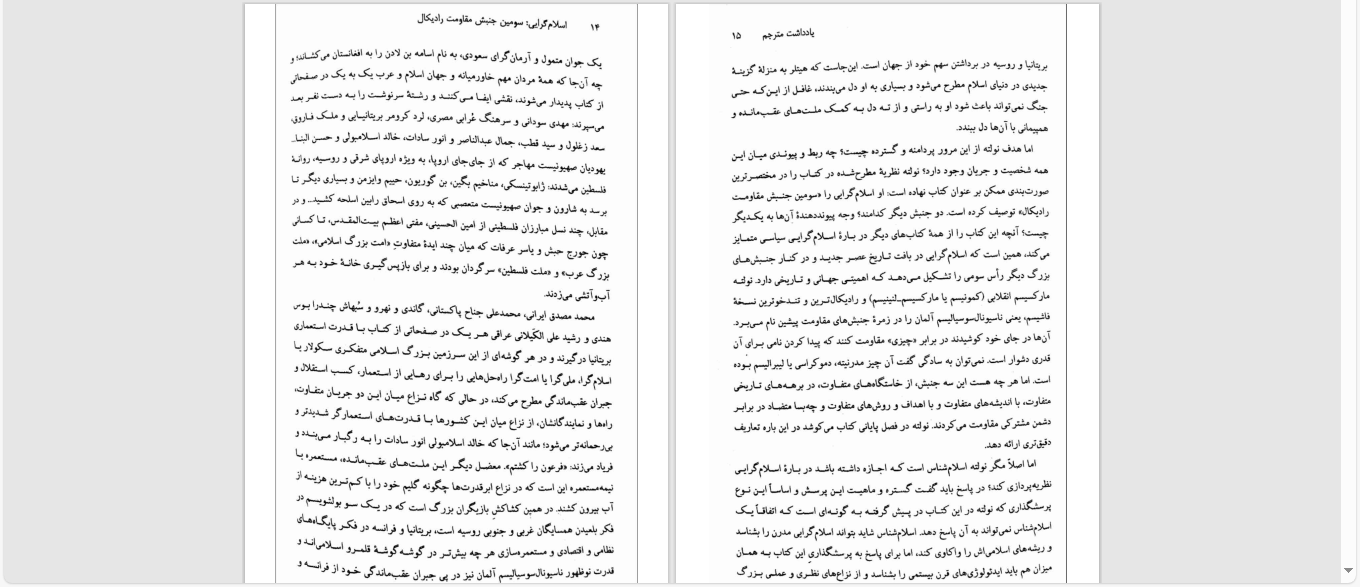 ۱۴ اسلام‌گرایی: سومین جنبش مقاومت رادیکال
یک جوان متمول و آرمان‌گرای سعودی، به نام اسامه بن لادن را به افغانستان می‌کشاند؛ و
چه آن‌جا که همهٔ مردان مهم خاورمیانه و جهان اسلام و عرب یک به یک در صفحاتی
از کتاب پدیدار می‌شوند، نقشی ایفا می‌کنند و رشتهٔ سرنوشت را به دست نفر بعد
می‌سپرند: مهدی سودانی و سرهنگ عُرابی مصری، لرد کرومر بریتانیایی و ملک فاروق،
سعد زغلول و سید قطب، جمال عبدالناصر و انور سادات، خالد اسلامبولی و حسن البنا...
یهودیان صهیونیست مهاجر که از جای‌جای اروپا، به ویژه اروپای شرقی و روسیه، روانهٔ
فلسطین می‌شدند: ژابوتینسکی، مناخیم بگین، بن گوریون، حییم وایزمن و بسیاری دیگر تا
برسد به شارون و جوان صهیونیست متعصبی که به روی اسحاق رابین اسلحه کشید... و در
مقابل، چند نسل مبارزان فلسطینی از امین الحسینی، مفتی اعظم بیت‌المقدس، تا کسانی
چون جورج حبش و یاسر عرفات که میان چند ایدهٔ متفاوتِ «امت بزرگ اسلامی»، «ملت
بزرگ عرب» و «ملت فلسطین» سرگردان بودند و برای بازپس‌گیری خانهٔ خود به هر
آب‌وآتشی می‌زدند.
محمد مصدق ایرانی، محمدعلی جناح پاکستانی، گاندی و نهرو و سُبهاش چندرا بوس
هندی و رشید علی الکَیلانی عراقی هر یک در صفحاتی از کتاب با قدرت استعماری
بریتانیا درگیرند و در هر گوشه‌ای از این سرزمین بزرگ اسلامی متفکری سکولار یا
اسلام‌گرا، ملی‌گرا یا امت‌گرا راه‌حل‌هایی را برای رهایی از استعمار، کسب استقلال و
جبران عقب‌ماندگی مطرح می‌کند، در حالی که گاه نزاع میان این دو جریان متفاوت،
راه‌ها و نمایندگانشان، از نزاع میان این کشورها با قدرت‌های استعمارگر شدیدتر و
بی‌رحمانه‌تر می‌شود؛ مانند آن‌جا که خالد اسلامبولی انور سادات را به رگبار می‌بندد و
فریاد می‌زند: «فرعون را کشتم». معضل دیگر این ملت‌های عقب‌مانده، مستعمره یا
نیمه‌مستعمره این است که در نزاع ابرقدرت‌ها چگونه گلیم خود را با کم‌ترین هزینه از
آب بیرون کشند. در همین کشاکشِ بازیگران بزرگ است که در یک سو بولشویسم در
فکر بلعیدن همسایگان غربی و جنوبی روسیه است، بریتانیا و فرانسه در فکر پایگاه‌های
نظامی و اقتصادی و مستعمره‌سازی هر چه بیش‌تر در گوشه‌گوشهٔ قلمرو اسلامی‌اند و
قدرت نوظهور ناسیونال‌سوسیالیسم آلمان نیز در پی جبران عقب‌ماندگی خود از فرانسه و
یادداشت مترجم ۱۵
بریتانیا و روسیه در برداشتن سهم خود از جهان است. این‌جاست که هیتلر به منزلهٔ گزینهٔ
جدیدی در دنیای اسلام مطرح می‌شود و بسیاری به او دل می‌بندند، غافل از این‌که حتی
جنگ نمی‌تواند باعث شود او به راستی و از ته دل به کمک ملت‌های عقب‌مانده و
همپیمانی با آن‌ها دل ببندد.
اما هدف نولته از این مرور پردامنه و گسترده چیست؟ چه ربط و پیوندی میان این
همه شخصیت و جریان وجود دارد؟ نولته نظریهٔ مطرح‌شده در کتاب را در مختصرترین
صورت‌بندی ممکن بر عنوان کتاب نهاده است: او اسلام‌گرایی را «سومین جنبش مقاومت
رادیکال» توصیف کرده است. دو جنبش دیگر کدامند؟ وجه پیونددهندهٔ آن‌ها به یکدیگر
چیست؟ آنچه این کتاب را از همهٔ کتاب‌های دیگر در بارهٔ اسلام‌گرایی سیاسی متمایز
می‌کند، همین است که اسلام‌گرایی در بافت تاریخ عصر جدید و در کنار جنبش‌های
بزرگ دیگر رأس سومی را تشکیل می‌دهد که اهمیتی جهانی و تاریخی دارد. نولته
مارکسیسم انقلابی (کمونیسم یا مارکسیسم‌ـ‌لنینیسم) و رادیکال‌ترین و تندخوترین نسخهٔ
فاشیسم، یعنی ناسیونال‌سوسیالیسم آلمان را در زمرهٔ جنبش‌های مقاومت پیشین نام می‌برد.
آن‌ها در جای خود کوشیدند در برابر «چیزی» مقاومت کنند که پیدا کردن نامی برای آن
قدری دشوار است. نمی‌توان به سادگی گفت آن چیز مدرنیته، دموکراسی یا لیبرالیسم بوده
است. اما هر چه هست این سه جنبش، از خاستگاه‌های متفاوت، در برهه‌های تاریخی
متفاوت، با اندیشه‌های متفاوت و با اهداف و روش‌های متفاوت و چه‌بسا متضاد در برابر
دشمن مشترکی مقاومت می‌کردند. نولته در فصل پایانی کتاب می‌کوشد در این باره تعاریف
دقیق‌تری ارائه دهد.
اما اصلاً مگر نولته اسلام‌شناس است که اجازه داشته باشد در بارهٔ اسلام‌گرایی
نظریه‌پردازی کند؟ در پاسخ باید گفت گستره و ماهیت این پرسش و اساساً این نوع
پرسشگذاری که نولته در این کتاب در پیش گرفته به گونه‌ای است که اتفاقاً یک
اسلام‌شناس نمی‌تواند به آن پاسخ دهد. اسلام‌شناس شاید بتواند اسلام‌گرایی مدرن را بشناسد
و ریشه‌های اسلامی‌اش را واکاوی کند، اما برای پاسخ به پرسشگذاریِ این کتاب به همان
میزان هم باید ایدئولوژی‌های قرن بیستمی را بشناسد و از نزاع‌های نظری و عملی بزرگ